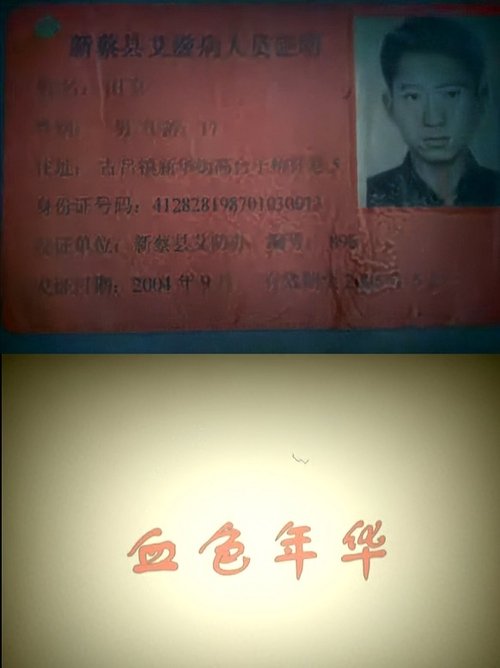 新蔡县艾滋病人员证明
姓名：
性别： 男 年龄：17
住址： 古吕镇新华街高台子
身份证号码：412828198701030013
发证单位：新蔡县艾防办 编号：
发证日期：2004年9月 有效期至
血色年华